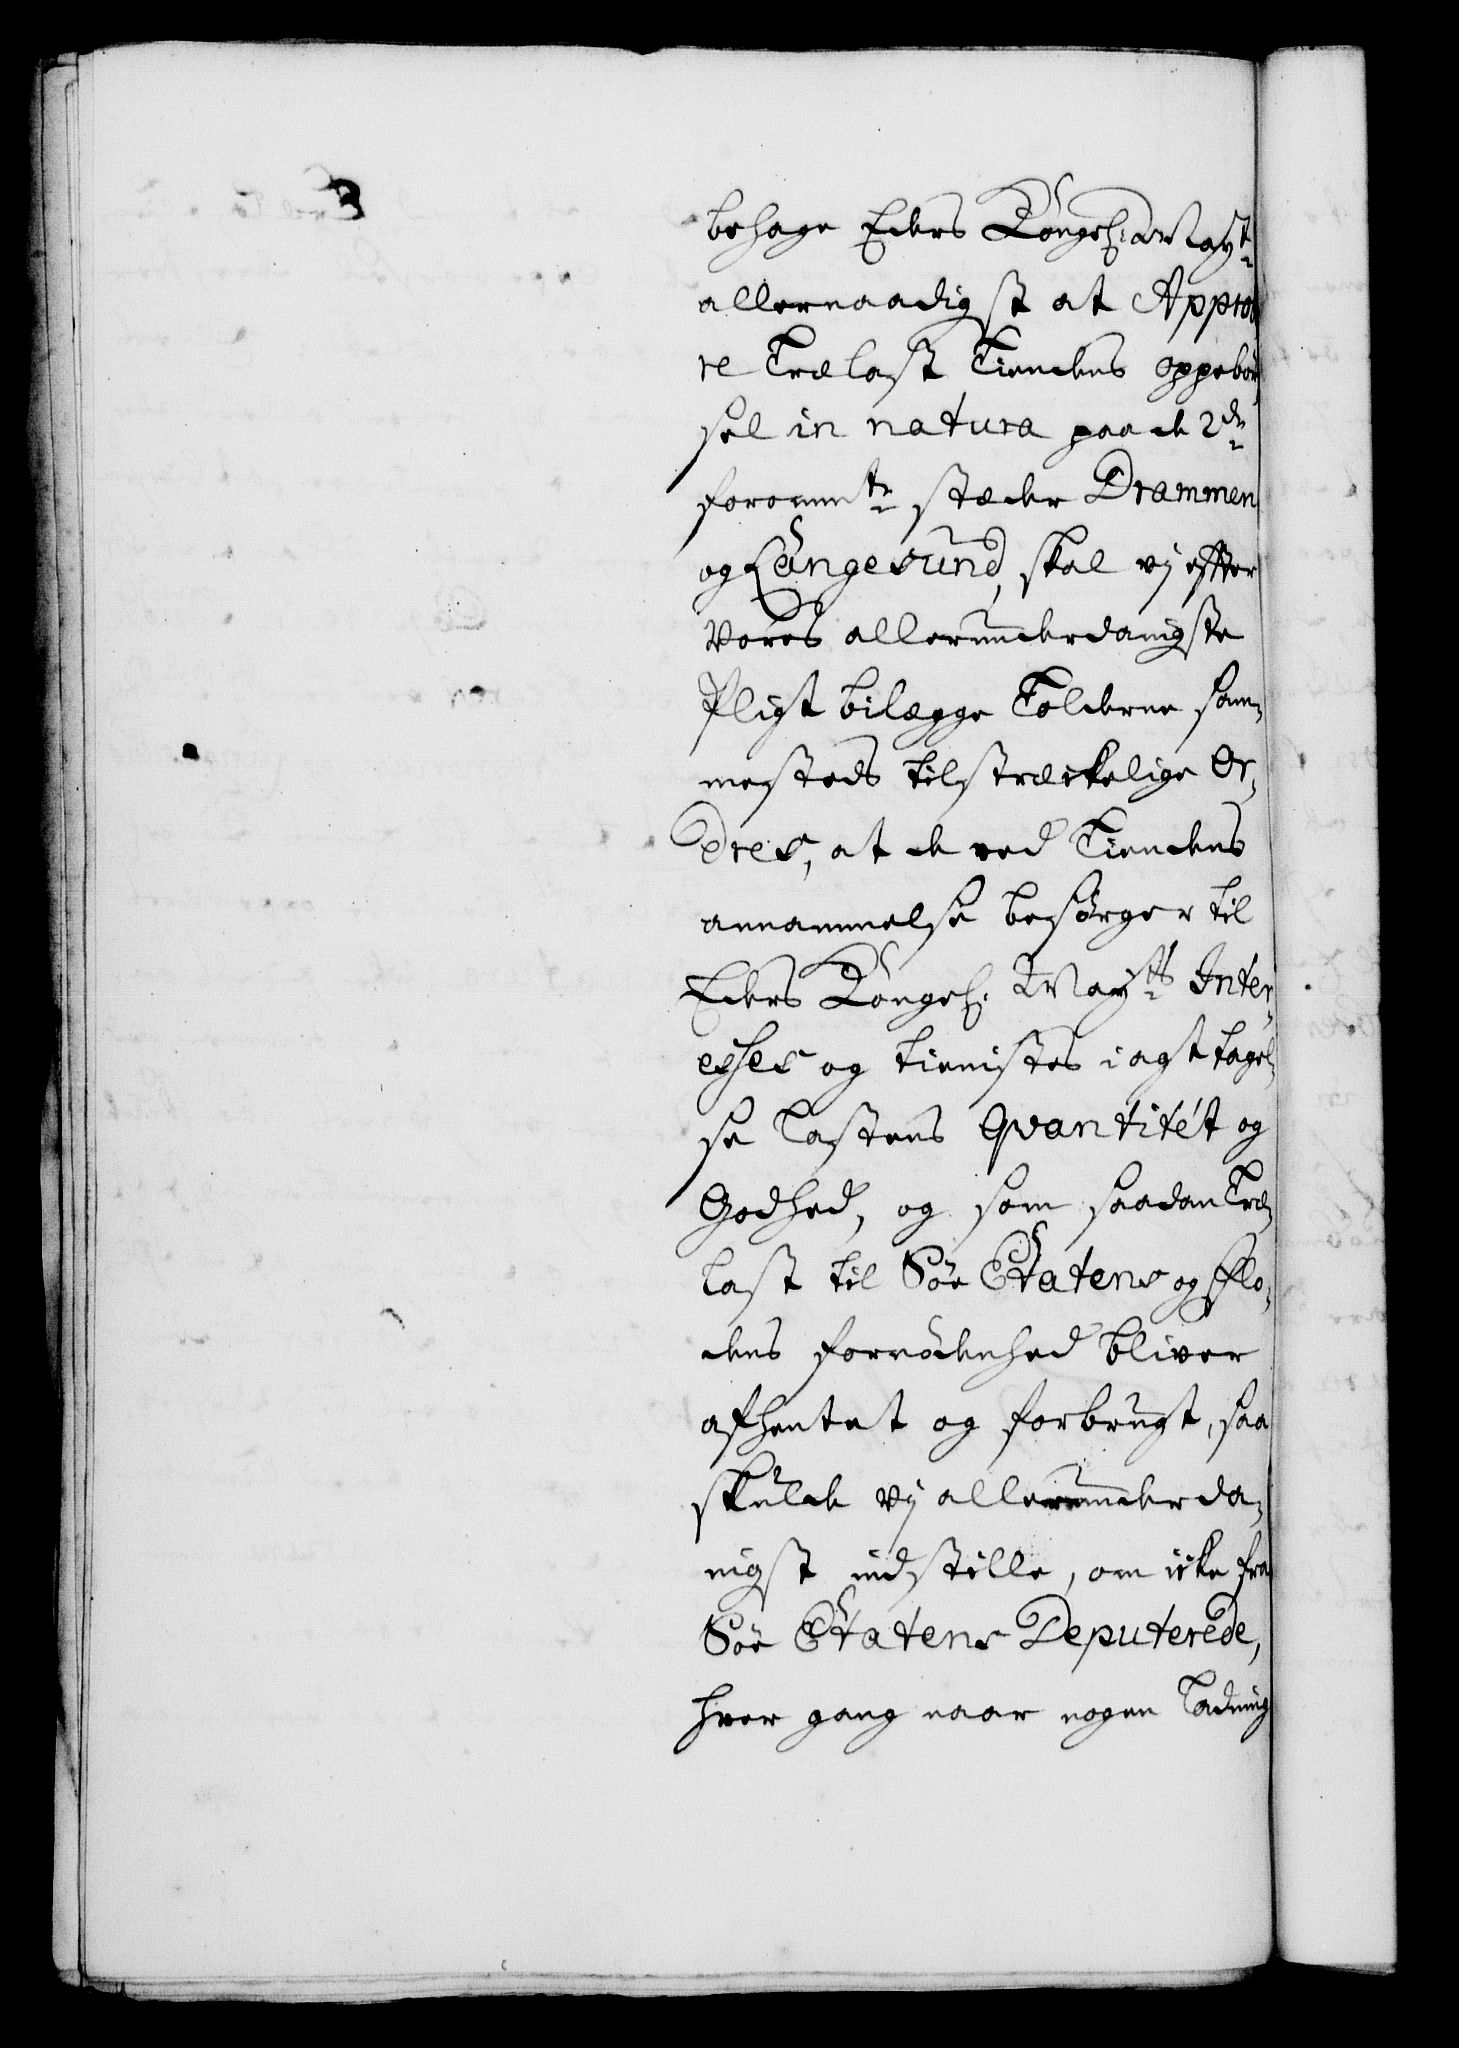 behage Eders Kongel: Mayt
allernaadigst at Appro
re Trælast Tiendens oppebør
sel in natura paa de 2de
forommte stæder Drammen
og Langesund, skal vij effter
Vores allerunderdanigste
Pligt bilægge Tolderne sam¬
mesteds tilstreckelige Or¬
dres, at de ved Tiendens
annammelse besørger til
Eders Kongel: Mayts Inter¬
esses og tienistes iagttagel¬
se Lastens Qvantitét og
Godhed, og som saadan Træ¬
last til Søe Etatens og Flo¬
dens fornødenhed bliver
afhentet og forbrugt, saa
skulde vij allerunderda¬
nigst indstille, om icke fra
Søe Etatens Deputerede,
hver gang naar nogen Ladning